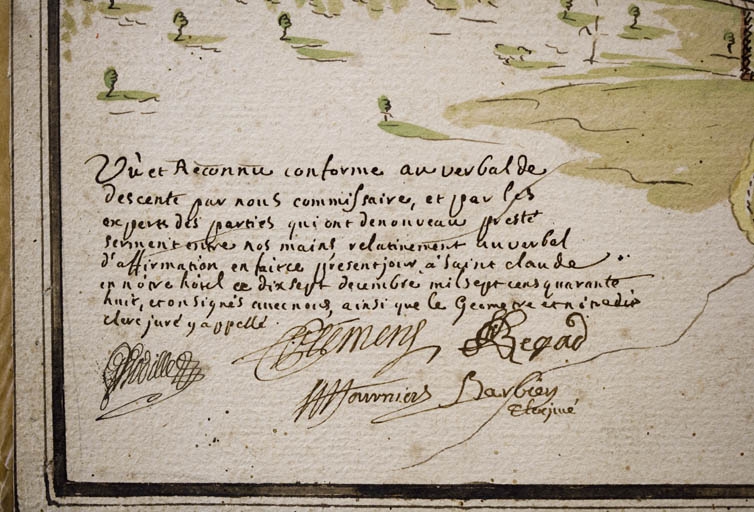 Vû et Reconnu conforme au verbal de
descente par nous commissaire, et par les
experts des parties qui ont denouveau presté
serment entre nos mains relativement au verbal
d'affirmation en faitce présent jour, a saint claude
en nôtre hôtel ce dixsept decembre mil sept cens quarante
huit, et on signés avec nous, ainsi que le Geometre et
clerc juré y appellé
Clemens Regad
Barbier
Clerjuré